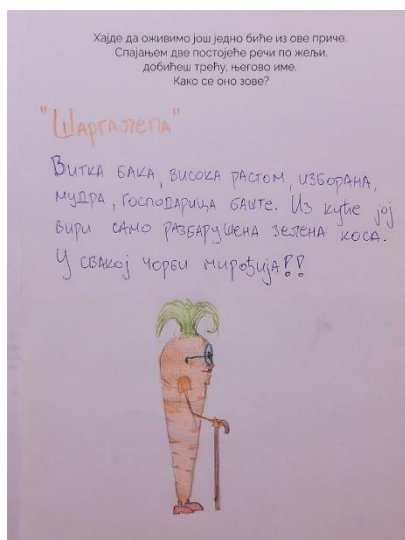 Хајде да оживимо још једно биће из ове приче.
Спајањем две постојеће речи по жељи,
добићеш трећу, његово име.
Како се оно зове?
"Шаргалепа"
Витка бака, висока растом, изборана,
мудра, господарица баште. Из куће јој
вири само разбарушена зелена коса.
У свакој чорби мирођија!!